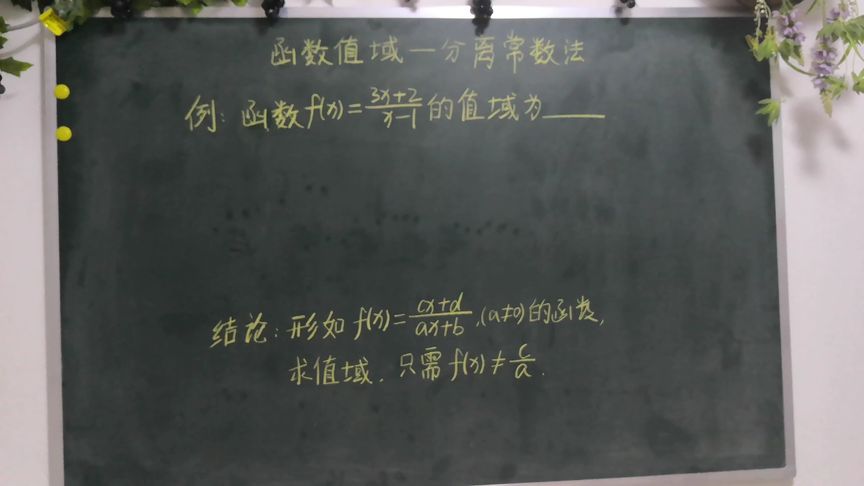 函数值域—分离常数法
例：函数f(x)=\frac{3x+2}{x-1}的值域为____
结论：形如 f(x)=\frac{cx+d}{ax+b},(a≠0)的函数,
求值域，只需f(x)≠\frac{c}{a}.